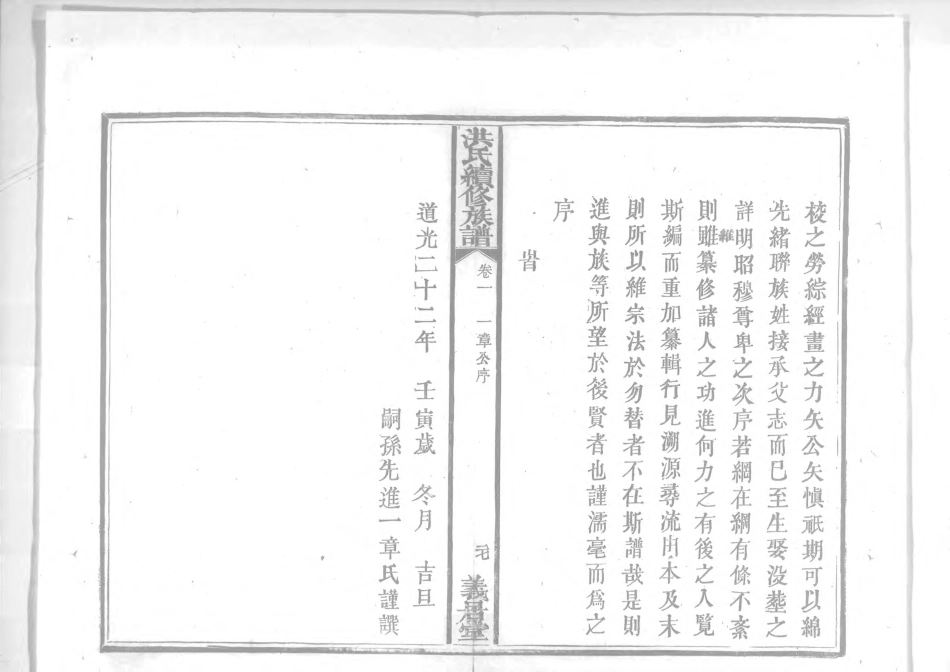 校之勞綜經畫之力矢公矢慎祇期可以綿
先緒聯族姓接承父志而巳至生娶没塟之
詳明昭穆尊卑之次序若綱在綱有條不紊
維
則雖纂修諸人之功進何力之有後之入覽
斯編而重加纂輯行見溯源尋流由本及末
則所以維宗法於勿替者不在斯譜哉是則
進與族等所望於後賢者也謹濡毫而爲之
序
旹
洪氏續修族譜
卷一
一章公序
義居堂
道光二十二年 壬寅歲 冬月 吉旦
嗣孫先進一章氏謹譔